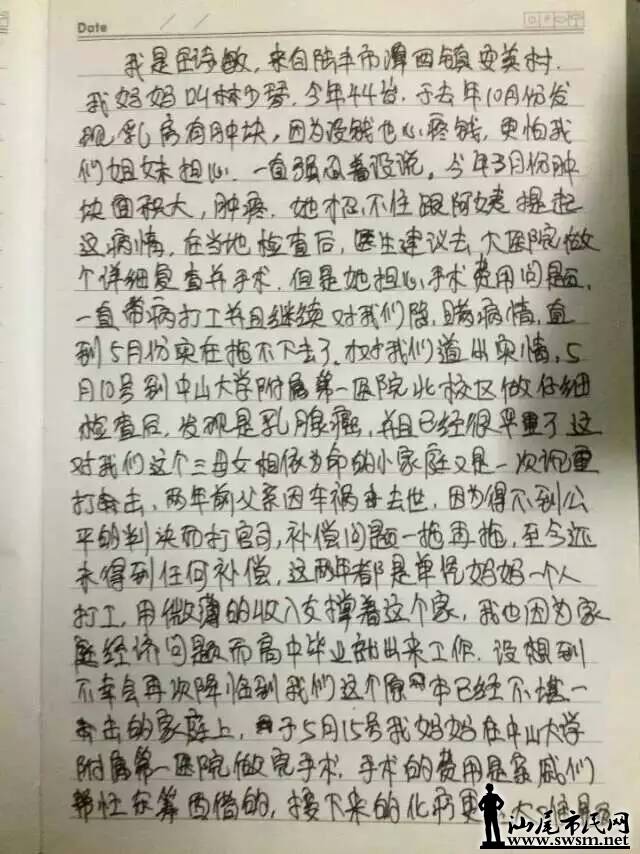 Date / /
我是 诗敏，来自陆丰市潭西镇安美村．
我妈妈叫林少琴．今年44岁．于去年10月份发
现乳房有肿块，因为没钱也心疼钱，更怕我
们姐妹担心．一直强忍着没说。今年3月份肿
块面积大，肿疼．她招不住跟阿姨提起
这病情．在当地检查后，医生建议去大医院做
个详细复查并手术．但是她担心手术费用问题，
一直带病打工并且继续对我们隐瞒病情，直
到5月份实在拖不下去了．才对我们道出实情，5
月10号到中山大学附属第一医院北校区做仔细
检查后，发现是乳腺癌，并且已经很严重了 这
对我们这个三母女相依为命的小家庭又是一次沉重
打击，两年前父亲因车祸去世，因为得不到公
平的判决而打官司，补偿问题一拖再拖，至今还
未得到任何补偿，这两年都是单凭妈妈一个人
打工，用微薄的收入支撑着这个家，我也因为家
庭经济问题而高中毕业就出来工作．没想到
不幸会再次降临到我们这个原本已经不堪一
击的家庭上，于5月15号我妈妈在中山大学
附属第一医院做完手术．手术的费用是亲戚们
东筹西借的，接下来的化疗更
汕尾市民网
www.swsm.net